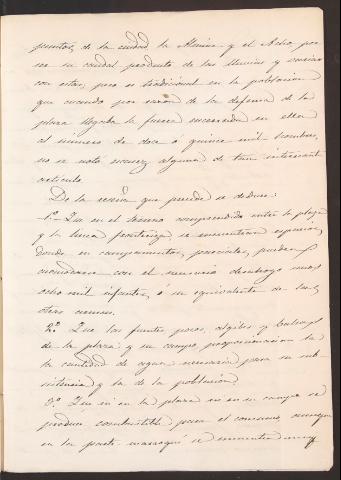 puntos, de la ciudad la Almina y el Acho, por
ser su caudal producto de las lluvias y variar
con estas, pero es tradicional en la poblacion
que cuando por razon de la defensa de la
plaza llegaba la fuerza encerrada en ella
al número de doce ó quince mil hombres,
no se notó escasez alguna de tan interesante
artículo.
De la reseña que precede se deduce:
1º Que en el terreno comprendido entre la plaza
y la linea fronteriza se encuentran espacios
donde en campamentos, parciales, pueden
acomodarse con el necesario desahogo unos
ocho mil infantes, ó su equivalente de las
otras armas.
2º Que las fuentes, pozos, algibes y
de la plaza y su campo proporcionan la
la cantidad de agua necesaria para su sub-
sistencia y la de la poblacion
3º Que ni en la plaza ni en su campo se
produce combustible para el consumo, aunque
en la parte marroquí se encuentra muy